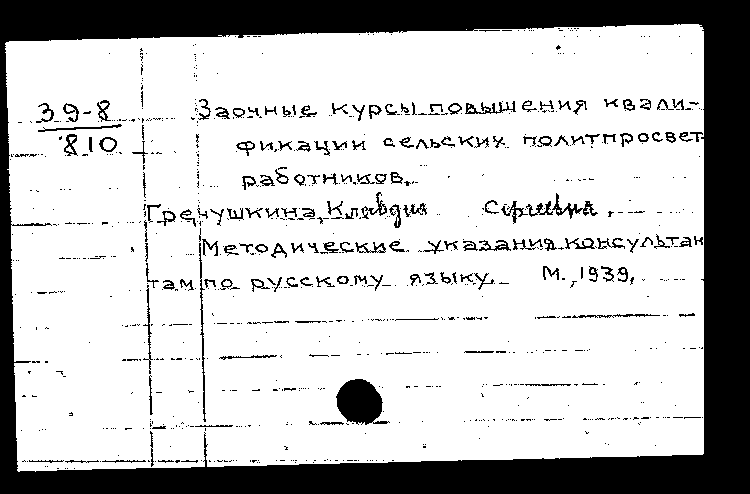 39-8
810
Заочные курсы повышения квали-
фикации сельских политпросвет
работников.
Гречушкина, Клавдия Сергеевна.
Методические указания консультан
там по русскому языку. М., 1939,